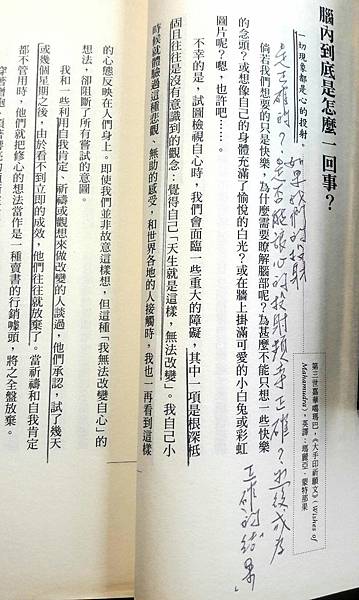 腦內到底是怎麼一回事？
一切現象都是心的投射
第三世嘉華噶瑪巴，《大手印祈願文》（Wishes of
Mahamudra），英譯：瑪麗亞．蒙特那果
倘若我們想要的只是快樂，為什麼需要了解腦部呢？為甚麼不能只想一些快樂
的念頭？或想像自己的身體充滿了愉悅的白光？或在牆上掛滿可愛的小白兔或彩虹
圖片呢？嗯，也許吧……。
不幸的是，試圖檢視自心時，我們會面臨一些重大的障礙，其中一項是根深柢
固且往往是沒有意識到的觀念：覺得自己「天生就是這樣，無法改變」。我自己小
時候就體驗過這種悲觀、無助的感受，和世界各地的人接觸時，我也一再看到這樣
的心態反映在人們身上。即使我們並非故意這樣想，但這種「我無法改變自心」的
想法，卻阻斷了所有嘗試的意圖。
我和一些利用自我肯定、祈禱或觀想來做改變的人談過，他們承認，試了幾天
或幾個星期之後，由於看不到立即的成效，他們往往就放棄了。當祈禱和自我肯定
都不管用時，他們就把修心的想法當作是一種賣書的行銷噱頭，將之全盤放棄。
如果我們的投射
是正確的？
正確的結果